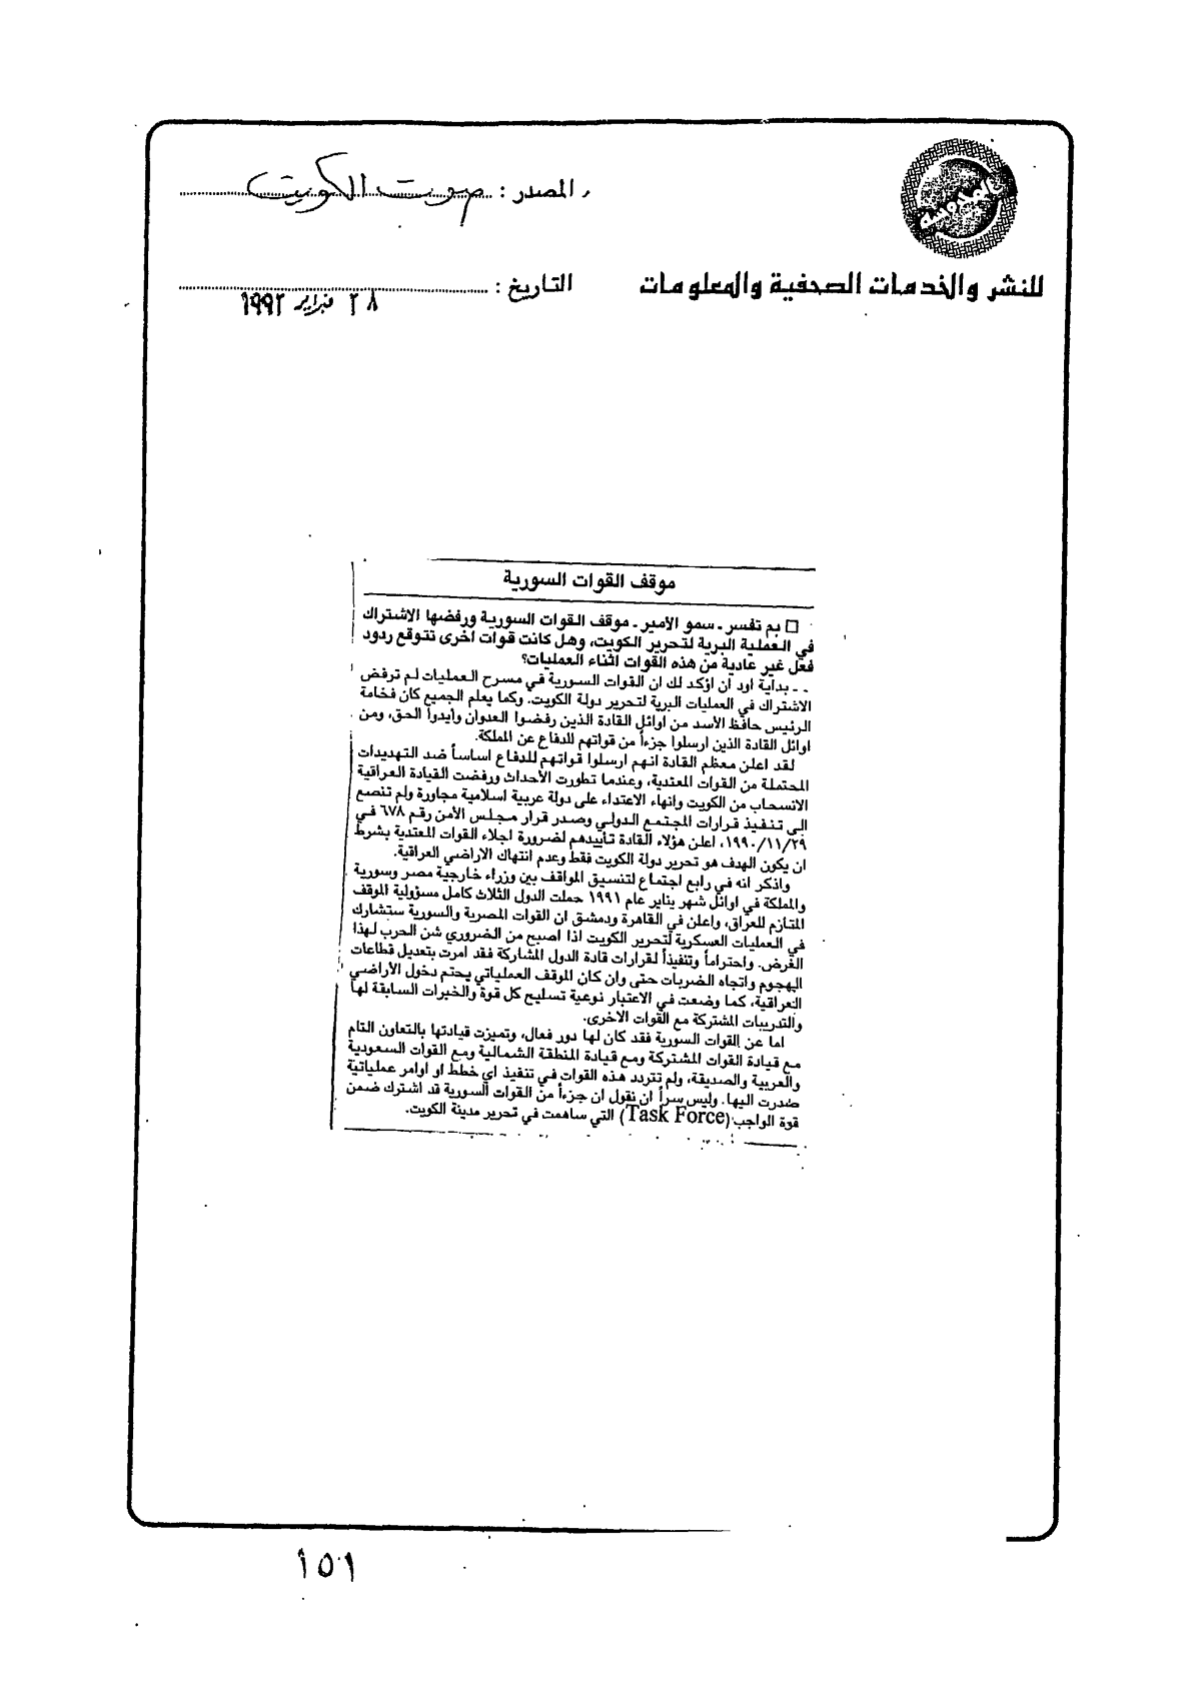 المصدر : صوت الكويت
للنشر والخدمات الصحفية والمعلومات
التاريخ : ٢٨ فبراير ١٩٩٢
موقف القوات السورية
□ بم تفسر ـ سمو الأمير ـ موقف القوات السورية ورفضها الاشتراك
في العملية البرية لتحرير الكويت، وهل كانت قوات اخرى تتوقع ردود
فعل غير عادية من هذه القوات اثناء العمليات؟
ـ ـ بداية اود ان اؤكد لك ان القوات السورية في مسرح العمليات لم ترفض
الاشتراك في العمليات البرية لتحرير دولة الكويت. وكما يعلم الجميع كان فخامة
الرئيس حافظ الأسد من اوائل القادة الذين رفضوا العدوان وأيدوا الحق، ومن
اوائل القادة الذين ارسلوا جزءاً من قواتهم للدفاع عن المملكة.
لقد اعلن معظم القادة انهم ارسلوا قواتهم للدفاع اساساً ضد التهديدات
المحتملة من القوات المعتدية، وعندما تطورت الأحداث ورفضت القيادة العراقية
الانسحاب من الكويت وانهاء الاعتداء على دولة عربية اسلامية مجاورة ولم تنصع
الى تنفيذ قرارات المجتمع الدولي وصدر قرار مجلس الأمن رقم ٦٧٨ في
١٩٩٠/١١/٢٩، اعلن هؤلاء القادة تأييدهم لضرورة اجلاء القوات المعتدية بشرط
ان يكون الهدف هو تحرير دولة الكويت فقط وعدم انتهاك الاراضي العراقية.
واذكر انه في رابع اجتماع لتنسيق المواقف بين وزراء خارجية مصر وسورية
والمملكة في اوائل شهر يناير عام ١٩٩١ حملت الدول الثلاث كامل مسؤولية الموقف
المتازم للعراق، واعلن في القاهرة ودمشق ان القوات المصرية والسورية ستشارك
في العمليات العسكرية لتحرير الكويت اذا اصبح من الضروري شن الحرب لهذا
الغرض. واحتراماً وتنفيذاً لقرارات قادة الدول المشاركة فقد امرت بتعديل قطاعات
الهجوم واتجاه الضربات حتى وان كان الموقف العملياتي يحتم دخول الأراضي
العراقية، كما وضعت في الاعتبار نوعية تسليح كل قوة والخبرات السابقة لها
والتدريبات المشتركة مع القوات الاخرى.
اما عن القوات السورية فقد كان لها دور فعال، وتميزت قيادتها بالتعاون التام
مع قيادة القوات المشتركة ومع قيادة المنطقة الشمالية ومع القوات السعودية
والعربية والصديقة، ولم تتردد هذه القوات في تنفيذ اي خطط او اوامر عملياتية
صدرت اليها. وليس سراً ان نقول ان جزءاً من القوات السورية قد اشترك ضمن
قوة الواجب (Task Force) التي ساهمت في تحرير مدينة الكويت.
١٥١